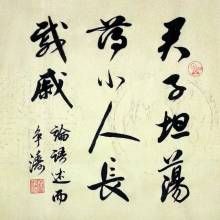 君子坦蕩
荡小人長
戚戚
論語述而